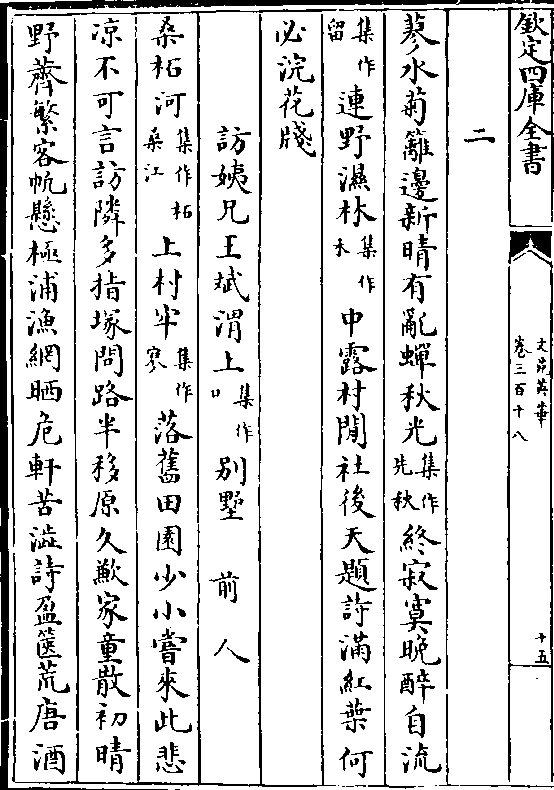 欽定四庫全書
文苑英華
卷三百十八
十五
二
蓼水菊籬邊新晴有亂蟬秋光集作先秋終寂寞晚醉自流
集作留連野濕林集作禾中露村閒社後天題詩滿紅葉何
必浣花牋
訪姨兄王斌渭上集作口別墅 前人
桑柘河集作柘桑江上村牢集作寥落舊田園少小嘗來此悲
凉不可言訪隣多指塚問路半移原久歎家童散初晴
野薺繁客帆懸極浦漁網晒危軒苦澁詩盈篋荒唐酒